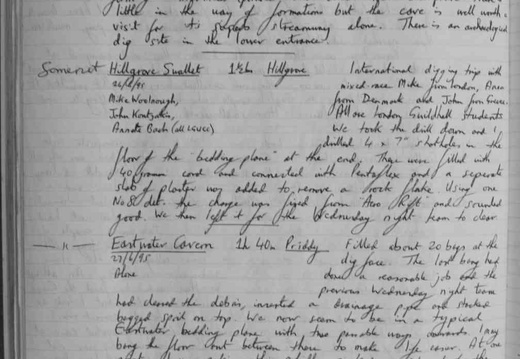 little in the way of formations but the cave is well worth a
visit for its superb streamway alone. There is an archaeological
dig site in the lower entrance.
Somerset Hillgrove Swallet 1½hr Hillgrove International digging trip with
26/6/95 mixed race Mike from London, Anna
Mike Woolnough, from Denmark and John from Greece.
John Kontzakis, All are London Guildhall students
Annette Bach (all LGUCC) We took the drill down and I
drilled 4 x 7" shotholes in the
floor of the "bedding plane" at the end. These were filled with
40 gramm cord and connected with Pentaflex and a separate
slab of plaster was added to remove a rock flake. Using one
No 8 det. the charge was fired from "Two Rift" and sounded
good. We then left it for the Wednesday night team to clear
— " — Eastwater Cavern 1h 40m Priddy Filled about 20 bags at the
27/6/95 dig face. The last bang had
Alone done a reasonable job and the
previous Wednesday night team
had cleared the debris, inserted a drainage pipe and stacked
bagged spoil on top. We now seem to be in a typical
Eastwater bedding plane with two passable ways onwards. I may
bang the floor between these to make life easier.